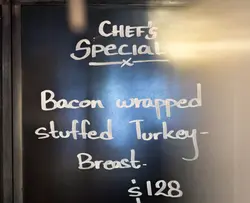 CHEF'S
SPECIAL
x
Bacon wrapped
stuffed Turkey-
Breast.
$128